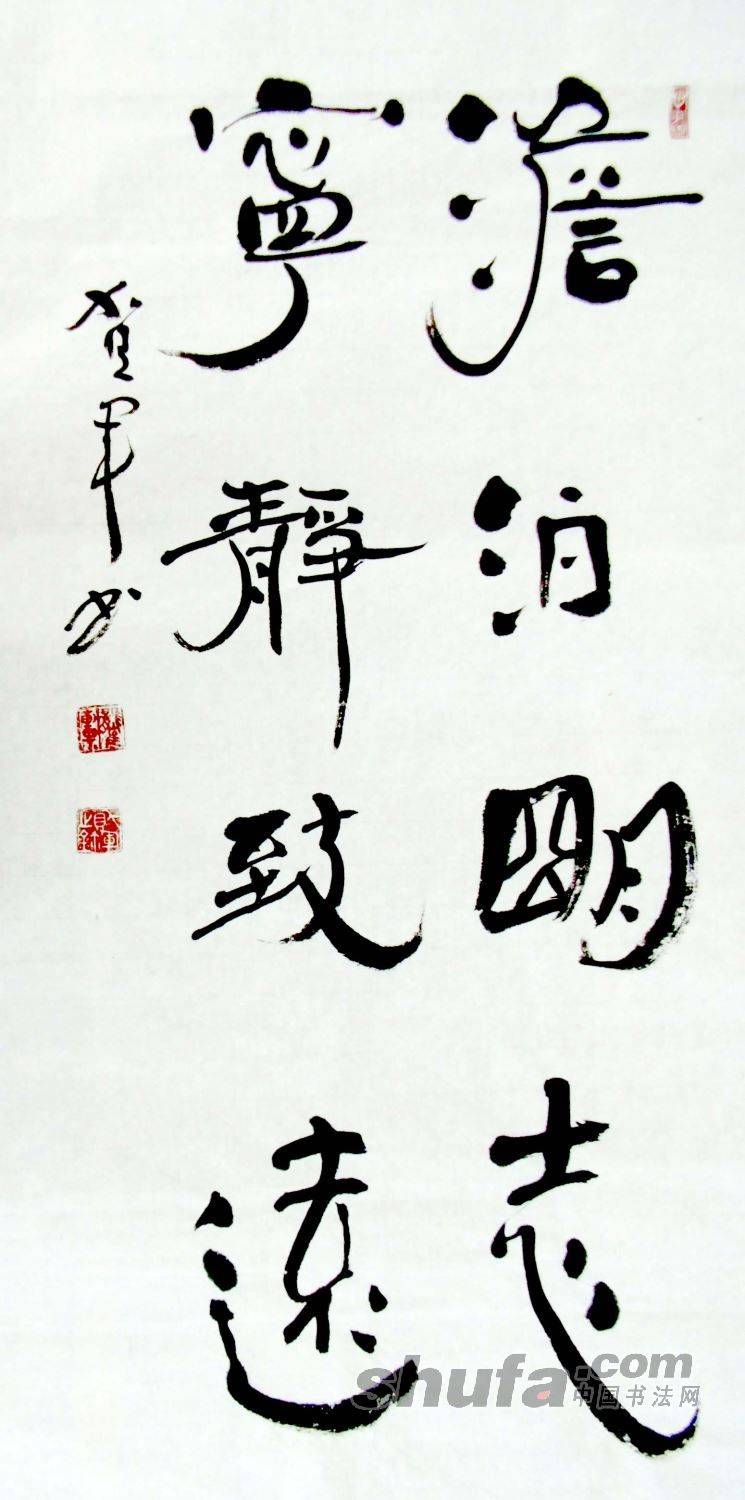 澹泊明志
寧靜致遠
shufa.com
中国书法网